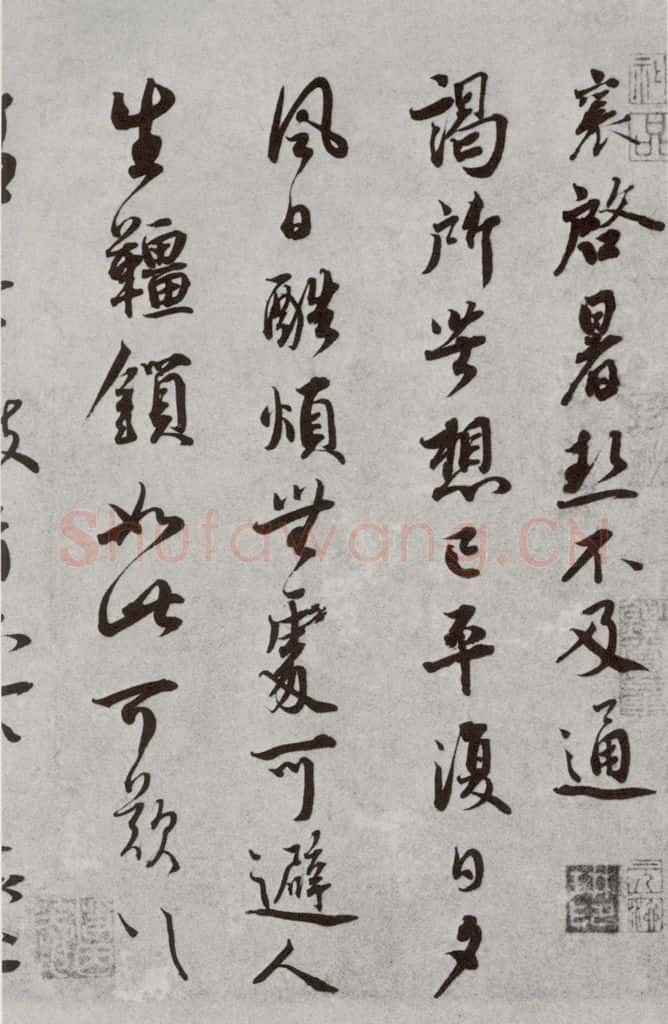 襄啓暑熱不及通
謁所苦想已平復日夕
風日酷煩無處可避人
生韁鎖如此可歎〻
Shufawang.CN